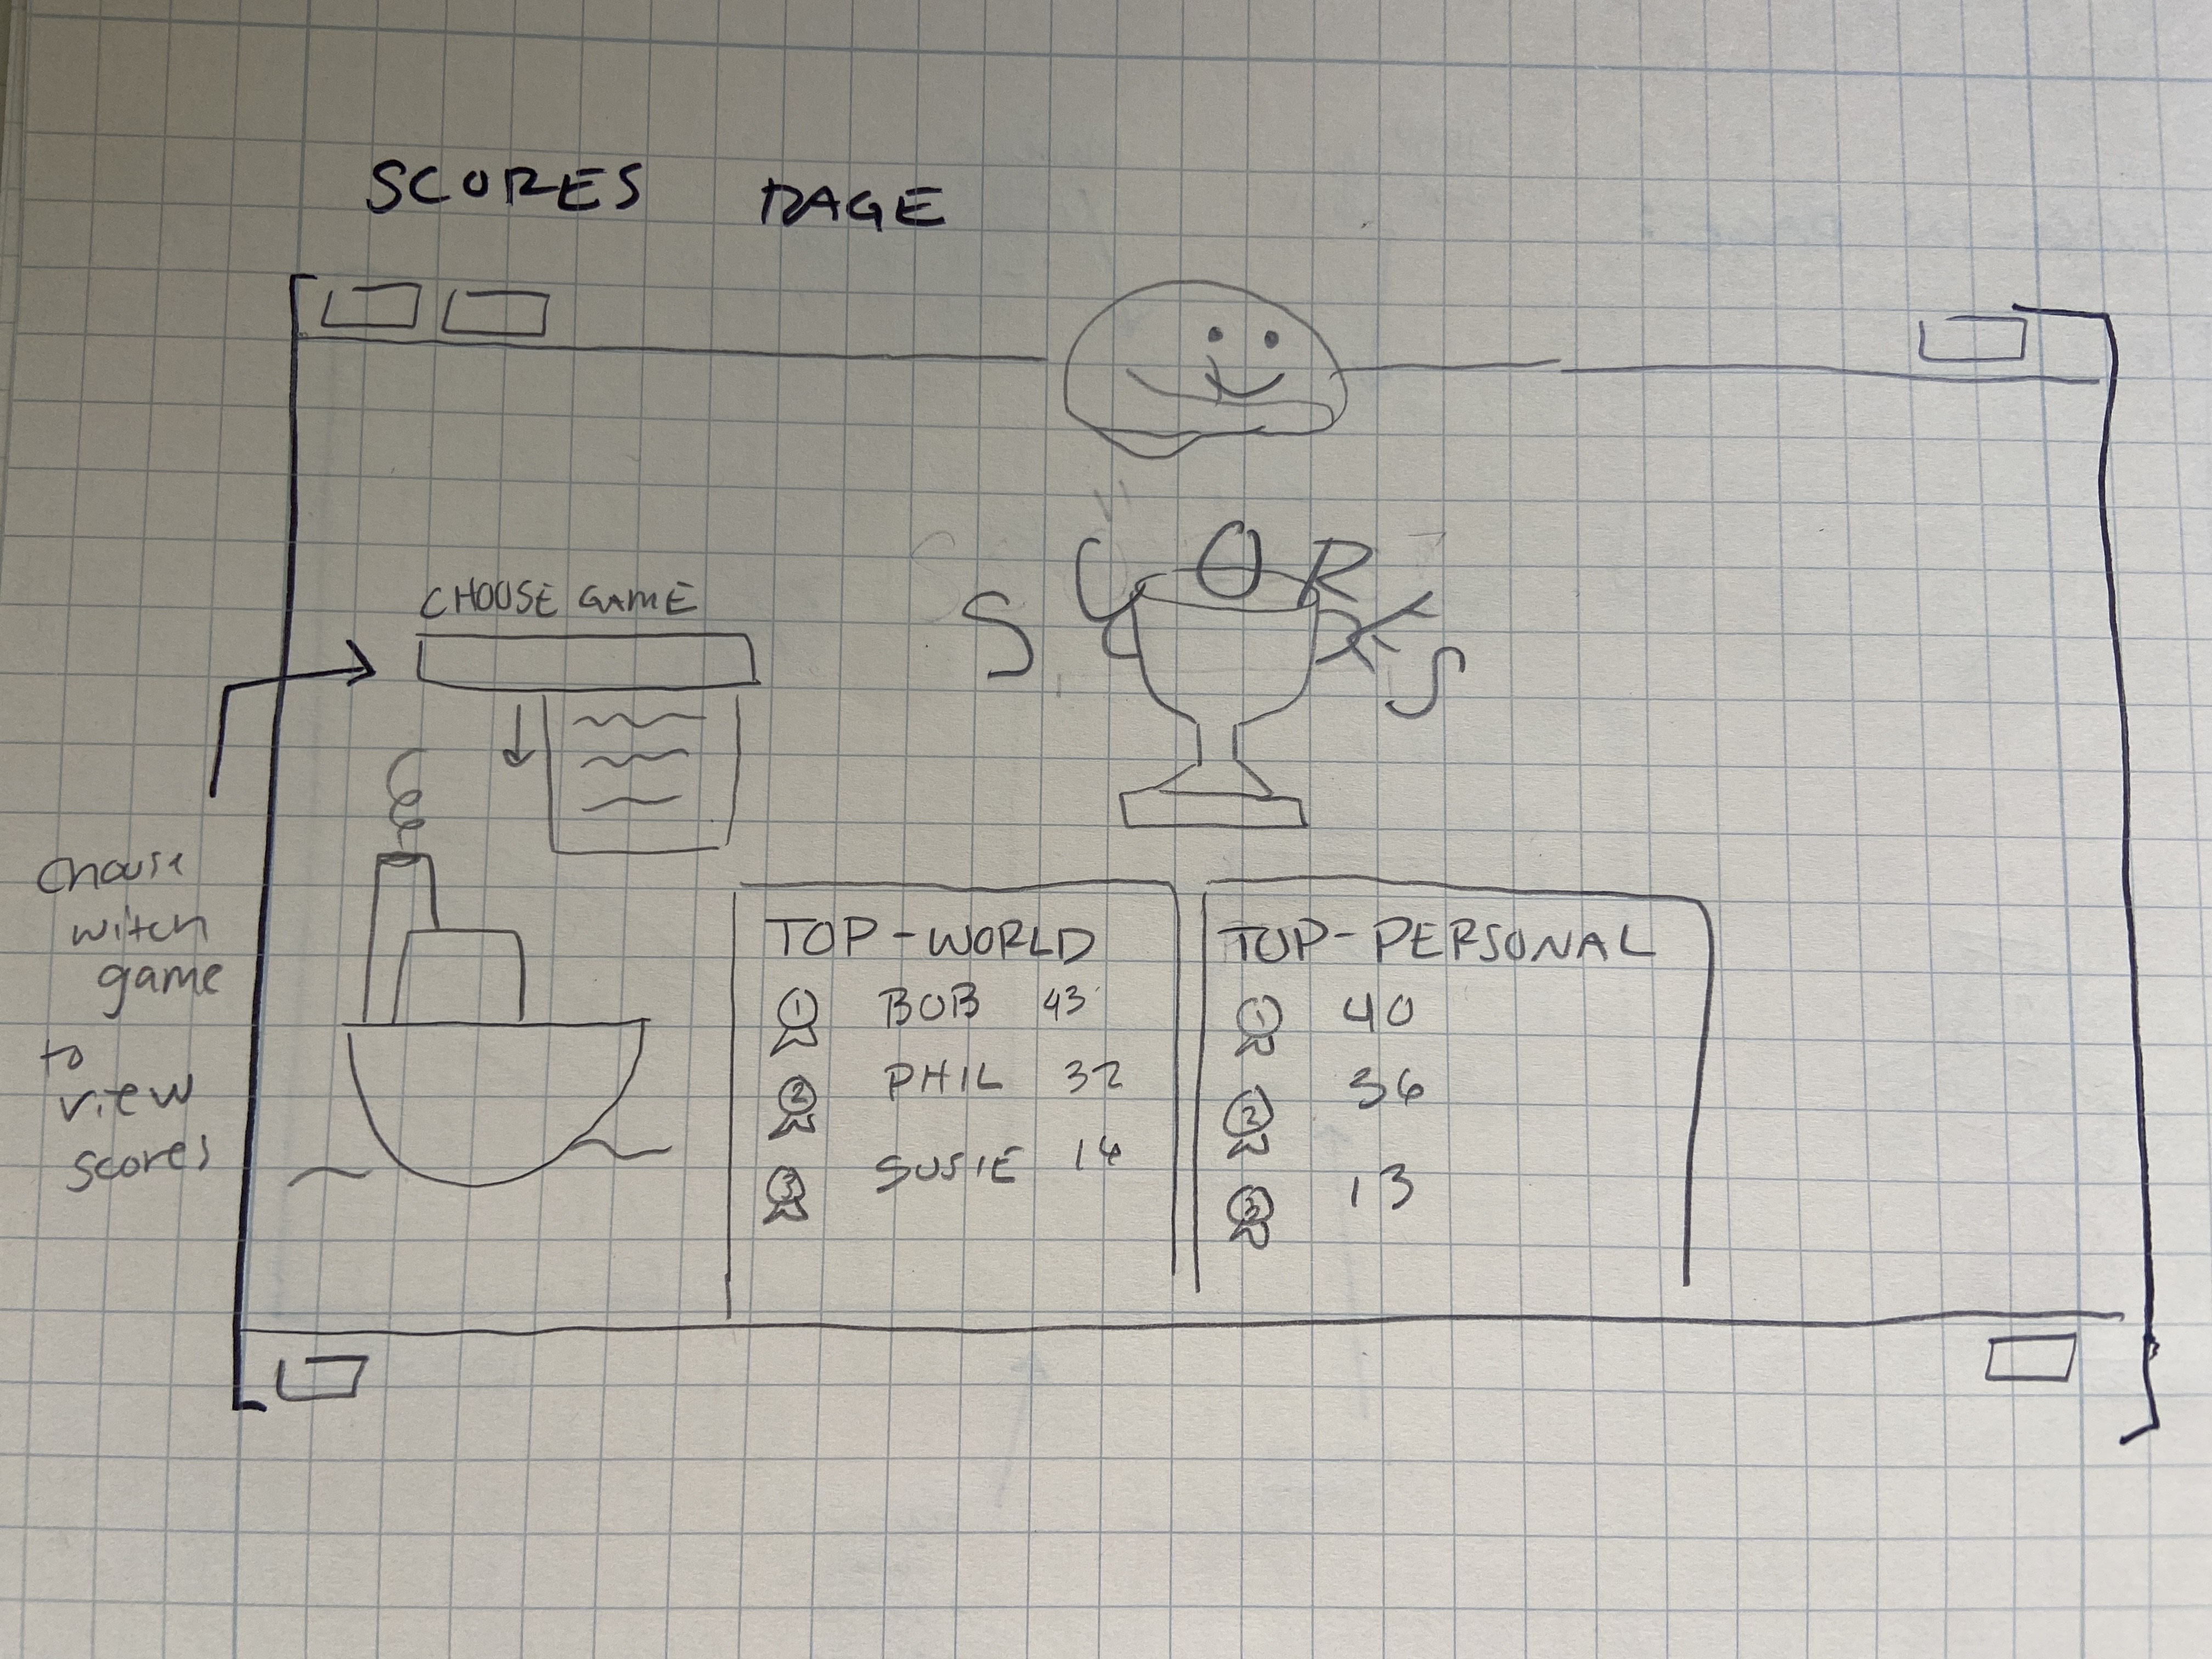 SCORES PAGE
SCORES
CHOOSE GAME
chouse
witch
game
to
view
scores
TOP-WORLD
1 BOB 43
2 PHIL 32
3 SUSIE 14
TOP-PERSONAL
1 40
2 36
3 13